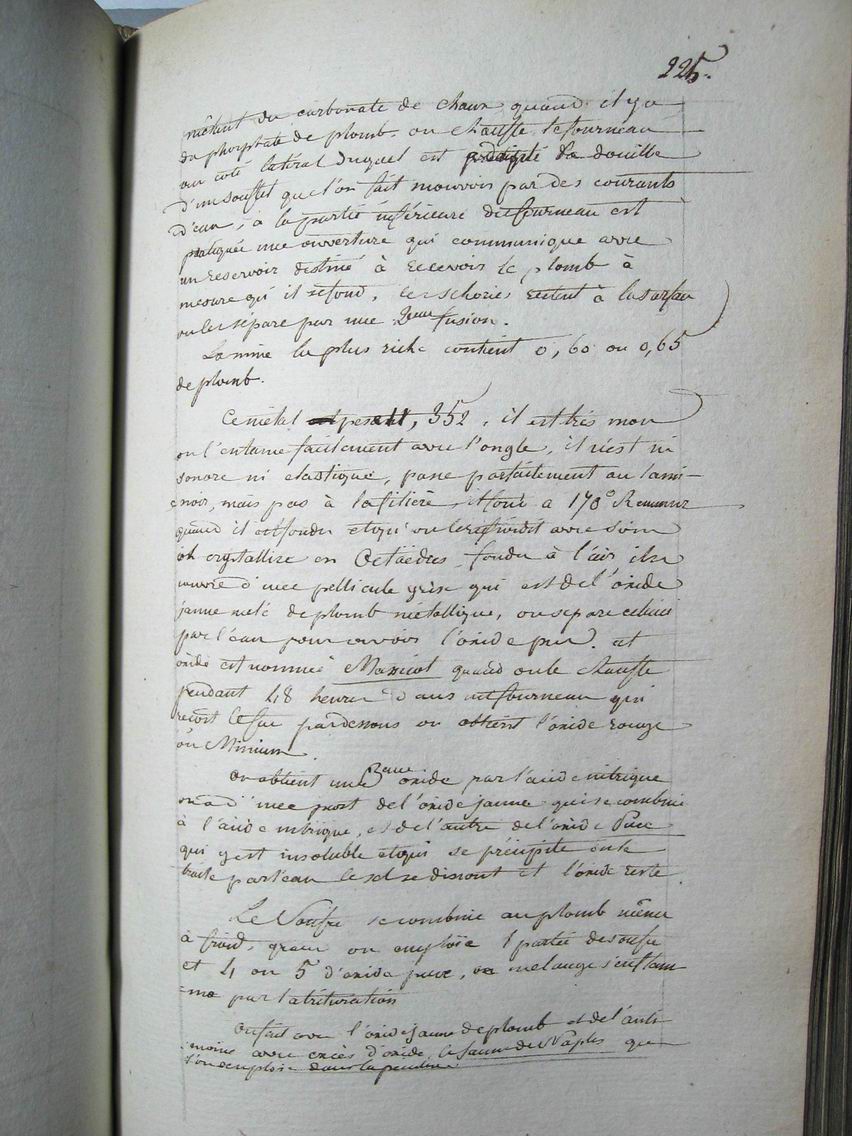 225.
mêtent du carbonate de chaux quand il y a
du phosphate de plomb. on chauffe le fourneau
au coté latéral duquel est pratiqué la douille
d'un soufflet que l'on fait mouvoir par des courants
d'eau, à la partie inférieure du fourneau est
pratiquée une ouverture qui communique avec
un reservoir destiné à recevoir le plomb à
mesure qu'il se fond, les schories restent à la surface
on les sépare par une 2eme fusion.
La mine la plus riche contient 0,60 ou 0,65
de plomb.
Ce metal pese 11,352, il est très mou
on l'entame facilement avec l'ongle, il n'est ni
sonore ni elastique, passe parfaitement au lami-
noir, mais pas à la filière, il fond a 170° Reaumur
quand il est fondu et qu'on le refroidit avec soin
crystallise en Octaèdres, fondu à l'air il se
couvre d'une pellicule grise qui est de l'oxide
jaune melé de plomb métallique, on separe celui ci
par l'eau pour avoir l'oxide pur. cet
oxide est nommé Massicot quand on le chauffe
pendant 48 heures dans un fourneau qui
recoit le feu par dessous on obtient l'oxide rouge
ou Minium.
on obtient un 3eme oxide par l'acide nitrique
on a d'une part de l'oxide jaune qui se combine
à l'acide nitrique, et de l'autre de l'oxide Puce
qui y est insoluble et qui se précipite on le
traite par l'eau le sel se dissout et l'oxide reste.
Le Soufre se combine au plomb même
à froid, quand on emploie 1 partie de soufre
et 4 ou 5 d'oxide puce, ce melange s'enflam-
=me par la trituration
On fait avec l'oxide jaune de plomb et de l'anti-
moine avec excès d'oxide, le Jaune de Naples que
l'on emploie dans la peinture.